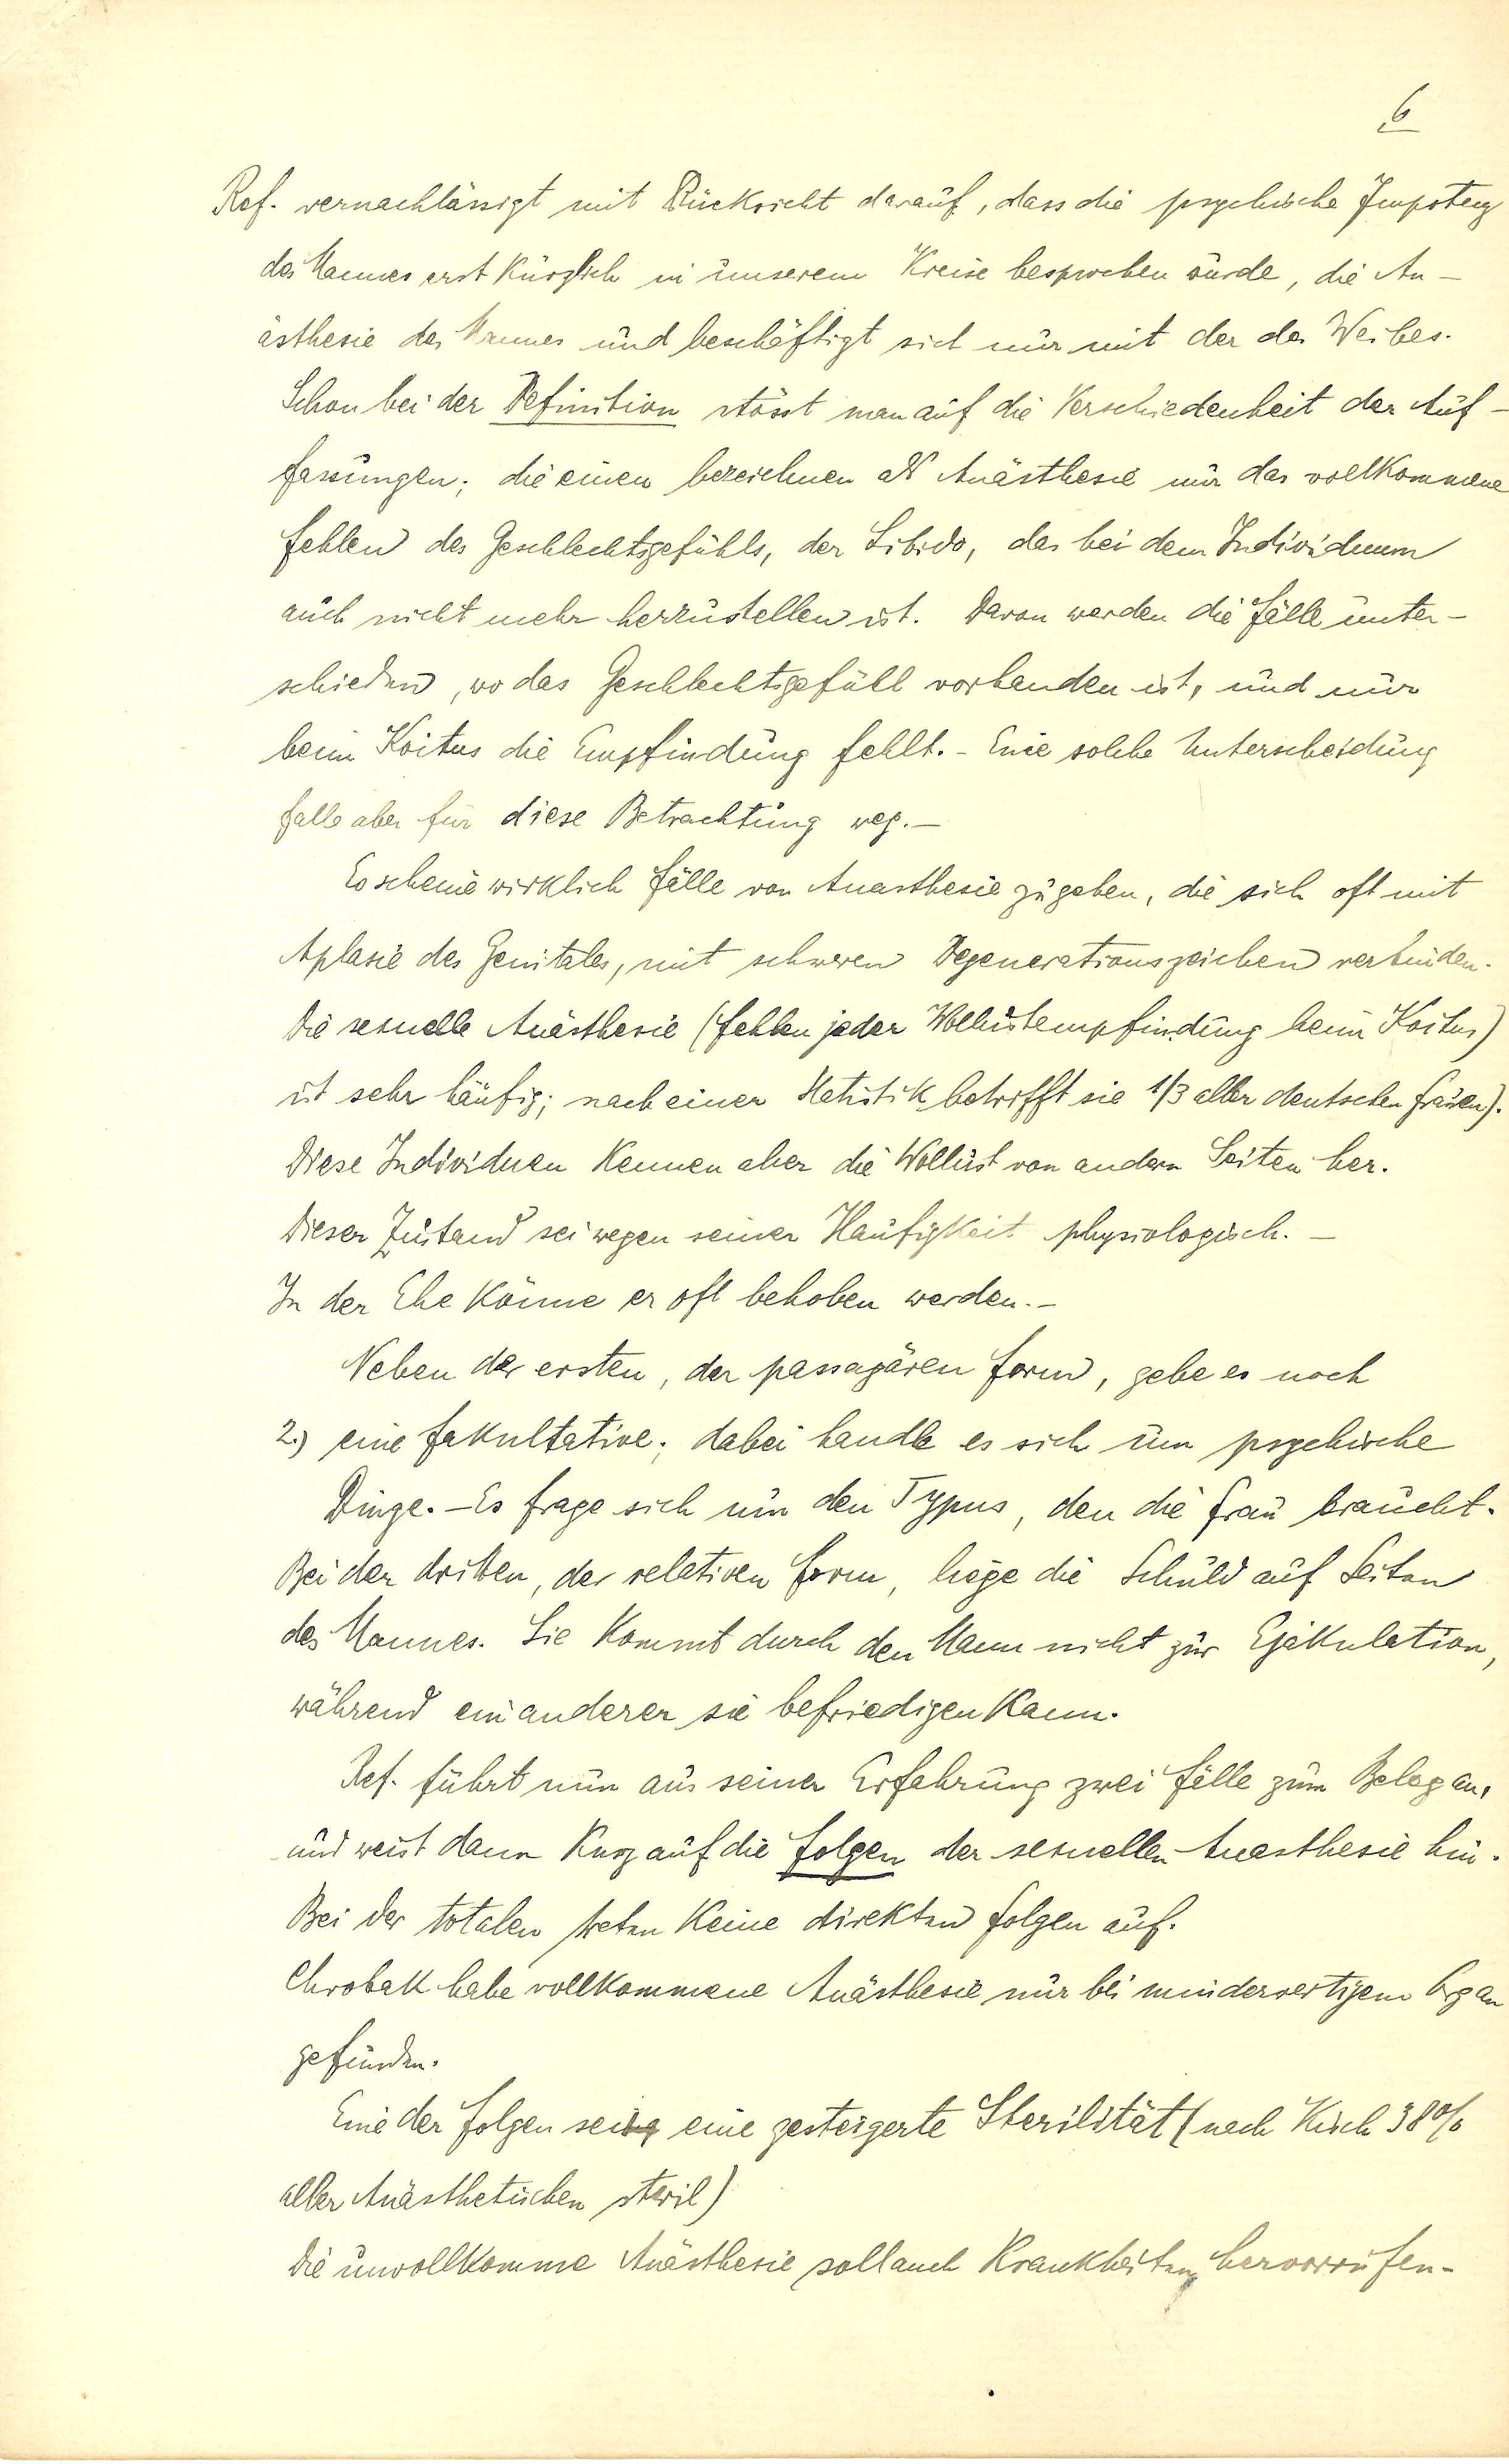 6
Ref. vernachlässigt mit Rücksicht darauf, dass die psychische Impotenz
des Mannes erst kürzlich in unserem Kreise besprochen wurde, die An-
ästhesie des Mannes und beschäftigt sich nur mit der des Weibes.
Schon bei der Definition stösst man auf die Verschiedenheit der Auf-
fassungen; die einen bezeichnen als Anästhesie nur das vollkommene
Fehlen des Geschlechtsgefühls, der Libido, das bei dem Individuum
auch nicht mehr herzustellen ist. Davon werden die Fälle unter-
schieden, wo das Geschlechtsgefühl vorhanden ist, und nur
beim Koitus die Empfindung fehlt. - Eine solche Unterscheidung
falle aber für diese Betrachtung weg. -
Es scheine wirklich Fälle von Anasthesie zu geben, die sich oft mit
Aplasie des Genitales, mit schweren Degenerationszeichen verbinden.
Die sexuelle Anästhesie (Fehlen jeder Wollustempfindung beim Koitus)
ist sehr häufig; nach einer Statistik betrifft sie 1/3 aller deutschen Frauen).
Diese Individuen kennen aber die Wollust von andern Seiten her.
Dieser Zustand sei wegen seiner Häufigkeit physiologisch. -
In der Ehe könne er oft behoben werden. -
Neben der ersten, der passagären Form, gebe es noch
2.) eine fakultative; dabei handle es sich um psychische
Dinge. - Es frage sich um den Typus, den die Frau braucht.
Bei der dritten, der relativen Form, liege die Schuld auf Seiten
des Mannes. Sie kommt durch den Mann nicht zur Ejakulation,
während ein anderer sie befriedigen kann.
Ref. führt nun aus seiner Erfahrung zwei Fälle zum Beleg an,
und weist dann kurz auf die Folgen der sexuellen Anasthesie hin.
Bei der totalen treten keine direkten Folgen auf.
Chrobak habe vollkommene Anästhesie nur bei minderwertigem Organ
gefunden.
Eine der Folgen sei eine gesteigerte Sterilität (nach Kisch 38%
aller Anästhetischen steril)
Die unvollkomme Anästhesie soll auch Krankheiten hervorrufen.